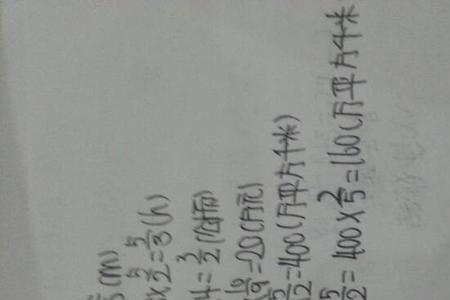 (m)
=5/3(h)
4=3/2
×10/9=20(万元)
5/2=400(万平方千米)
5/2=400×2/5=160(万平方千米